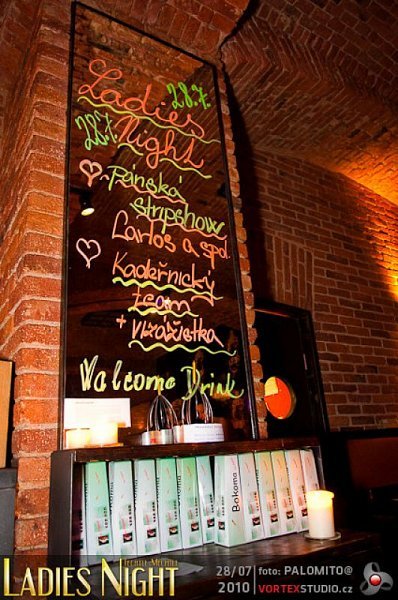 Ladies
28.7.
28.7.
Night
Pánská
stripshow
Carlos a spol.
Kadeřnický
team
+ vizážistka
Welcome Drink
Bokoma
LADIES NIGHT
28/07
2010
foto: PALOMITO@
VORTEXSTUDIO.cz